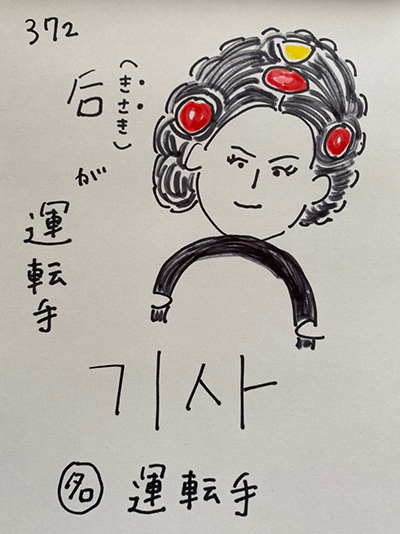 372
后(きさき)
が
運転手
기사
名 運転手